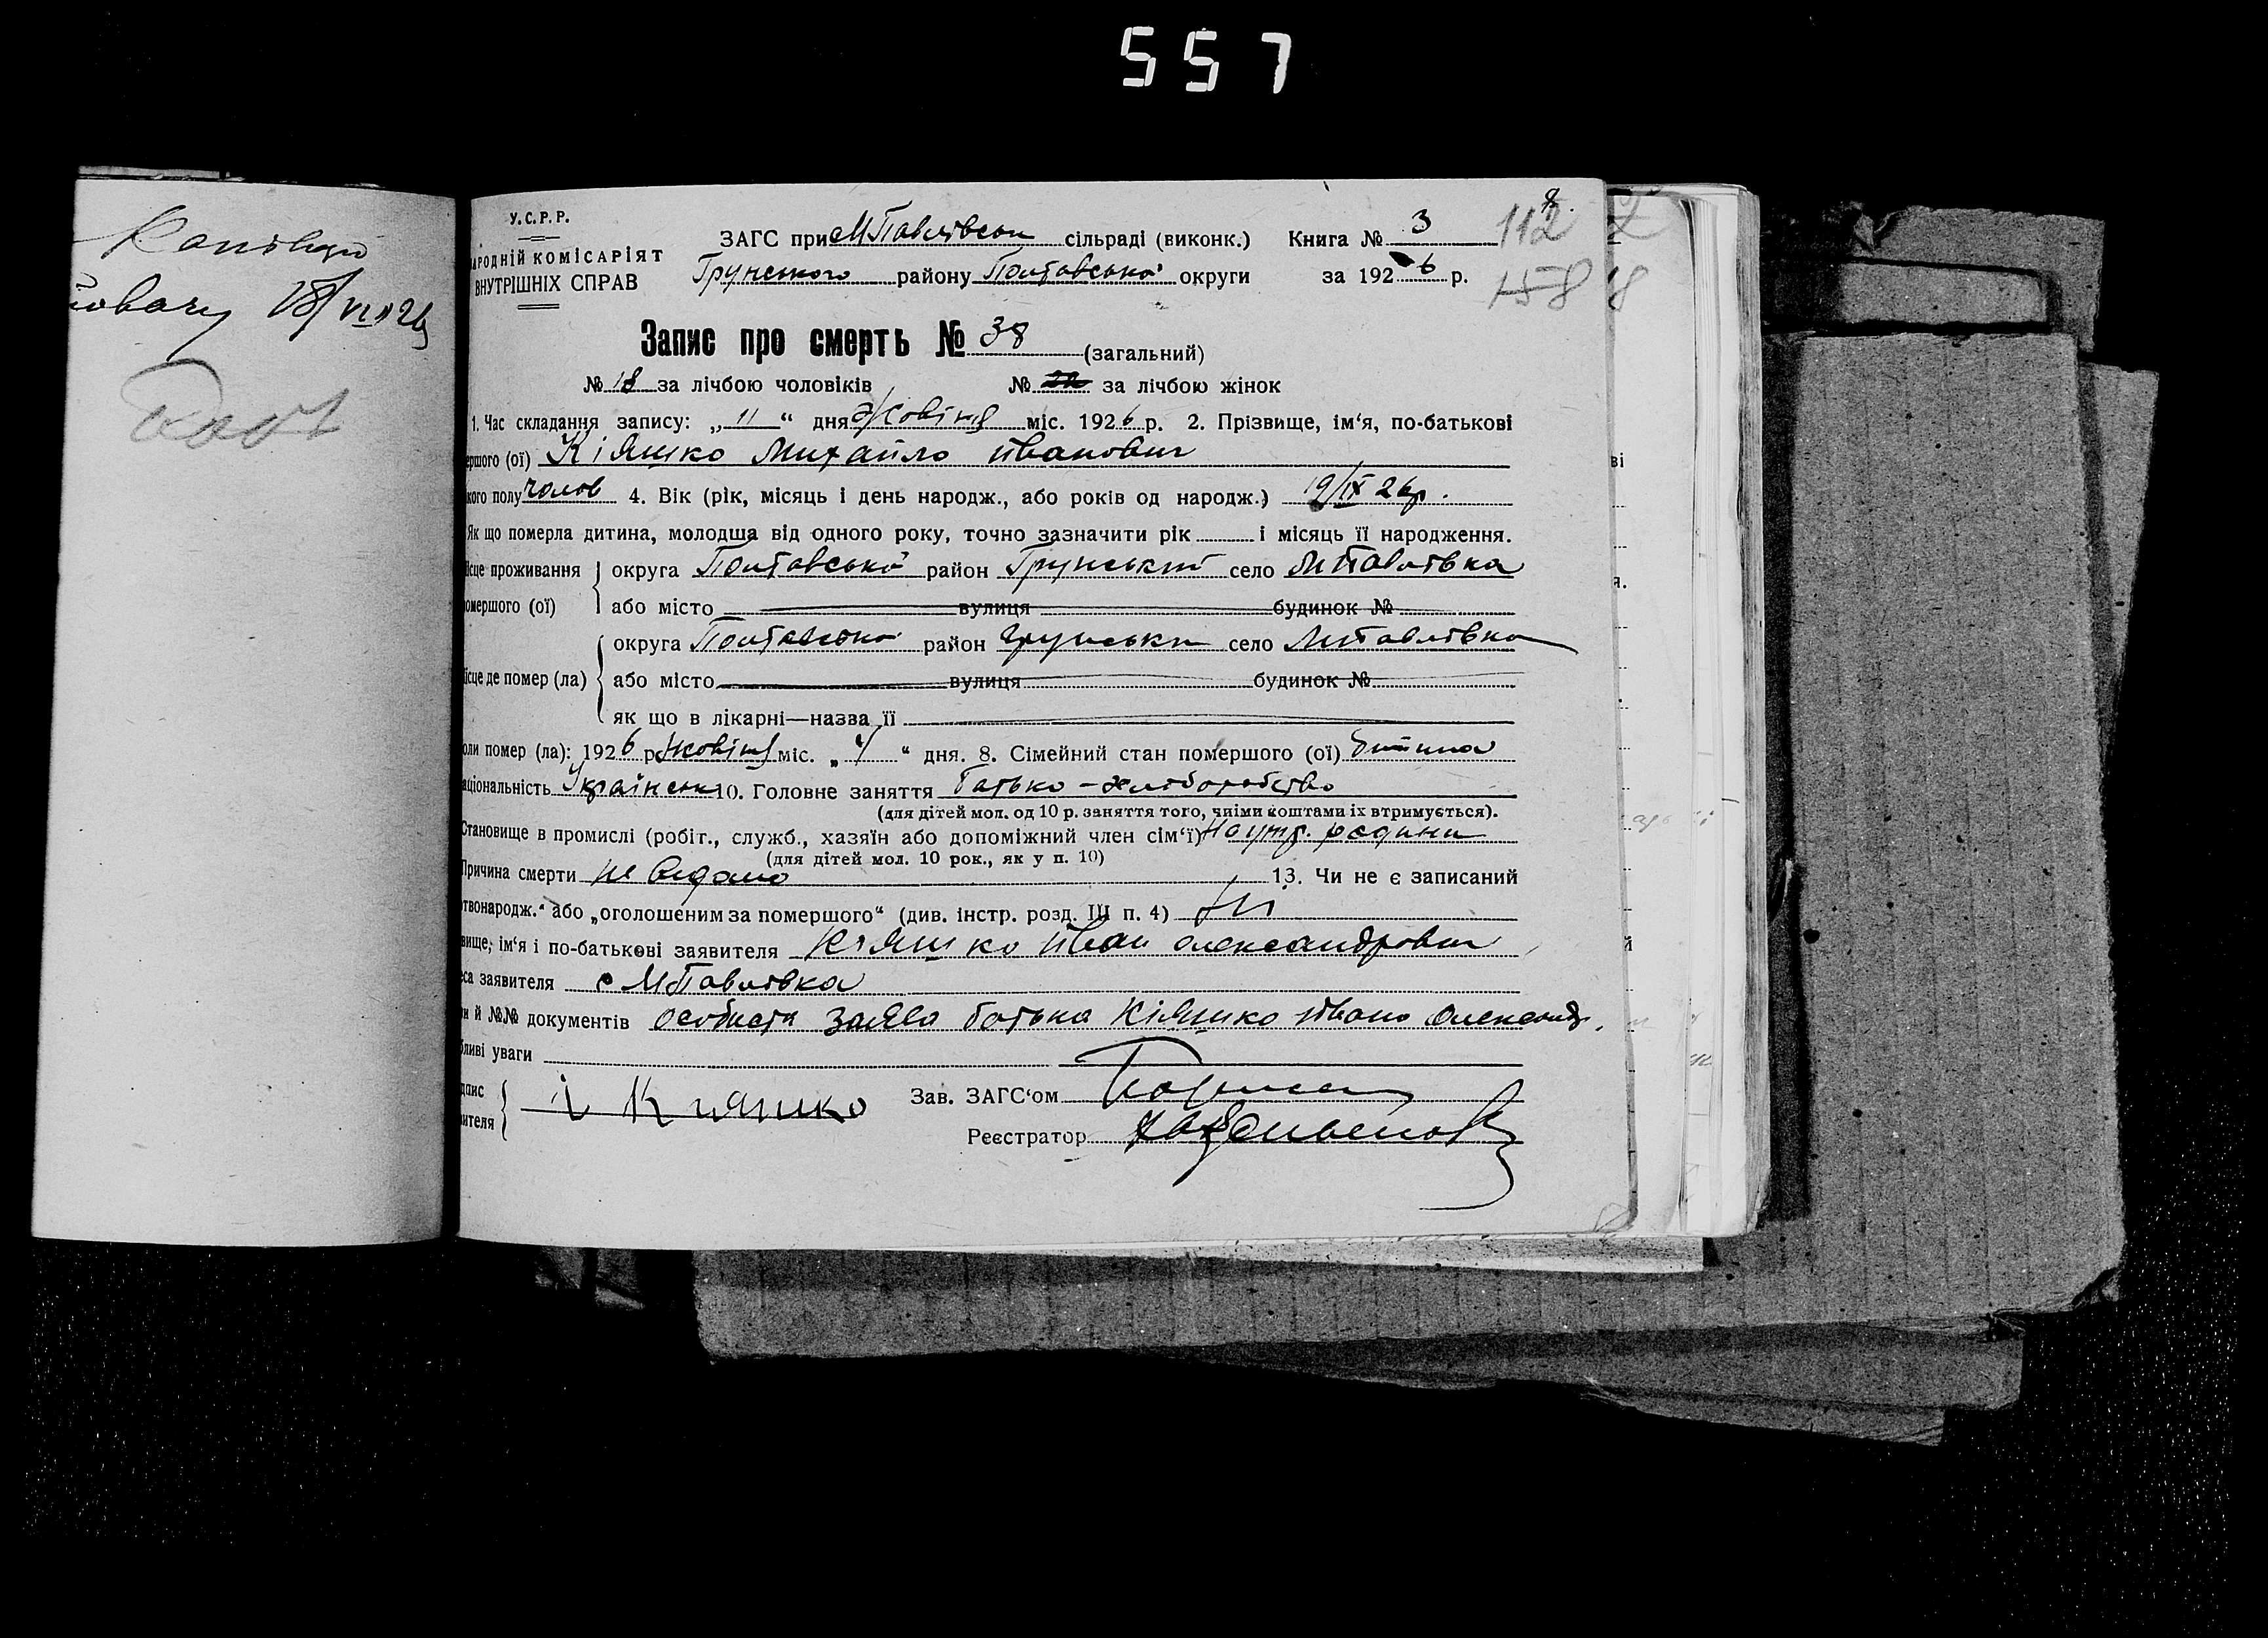 557
У.С.Р.Р.
АРОДНІЙ КОМІСАРІЯТ
ВНУТРІШНІХ СПРАВ
ЗАГС при МПавлівськ сільраді (виконк.) Книга № 3
112
Грунського району Полтавської округи за 1926 р.
158
Запис про смерть № 38 (загальний)
№ 18 за лічбою чоловіків № за лічбою жінок
1. Час складання запису: „ 11 “ дня Жовтня міс. 1926 р. 2. Прізвище, ім‘я, по-батькові
ершого (ої) Кіяшко Михайло Иванович
кого полу чолов 4. Вік (рік, місяць і день народж., або років од народж.) 19/IX 26р.
Як що померла дитина, молодша від одного року, точно зазначити рік і місяць її народження.
ісце проживання округа Полтавсько район Грунський село МПавлівка
омершого (ої) або місто вулиця будинок №
округа Полтавсько район Грунськи село МПавлівка
ісце де помер (ла) або місто вулиця будинок №
як що в лікарні—назва її
оли помер (ла): 1926 р. міс. „ “ дня. 8. Сімейний стан помершого (ої) дитина
аціональність Українськ 10. Головне заняття Батько - хліборобство
(для дітей мол. од 10 р. заняття того, чиїми коштами їх втримується).
Становище в промислі (робіт., служб., хазяїн або допоміжний член сім‘ї) На утр. родини
(для дітей мол. 10 рок., як у п. 10)
Причина смерти не видомо 13. Чи не є записаний
твонародж.“ або „оголошеним за помершого“ (див. інстр. розд. III п. 4) Ні
вище, ім‘я і по-батькові заявителя Кіяшко Иван Олександрович
еса заявителя с МПавлівка
и й №№ документів особиста заява батька Кіяшко Ивана Олександр.
бливі уваги
дпис
ителя і Кияшко Зав. ЗАГС‘ом
Реєстратор